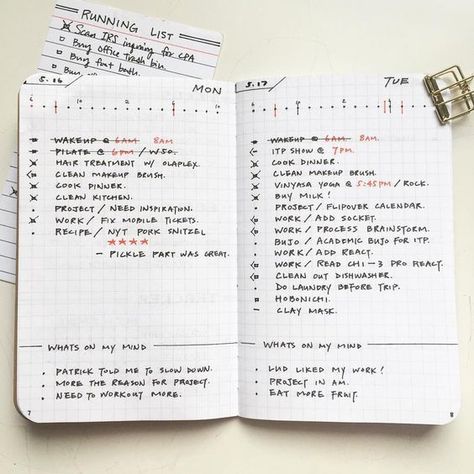 RUNNING LIST
Scan IRS inquiry for CPA
Buy Office Trash bin.
Buy foot bath.
5.16
MON
6 12 6
WAKEUP @ 6AM 8AM
PILATE @ 6PM / W50.
HAIR TREATMENT W/ OLAPLEX.
CLEAN MAKEUP BRUSH.
COOK DINNER.
CLEAN KITCHEN.
PROJECT / NEED INSPIRATION.
WORK / FIX MOBILE TICKETS.
RECIPE / NYT PORK SNITZEL
★★★★
— PICKLE PART WAS GREAT.
WHATS ON MY MIND
PATRICK TOLD ME TO SLOW DOWN.
MORE THE REASON FOR PROJECT.
NEED TO WORKOUT MORE.
7
5.17
TUE
6 12 6
WAKEUP @ 6AM 8AM
ITP SHOW @ 7PM.
COOK DINNER.
CLEAN MAKEUP BRUSH.
VINYASA YOGA @ 5:45PM / ROCK.
BUY MILK!
PROJECT / FLIPOVER CALENDAR.
WORK / ADD SOCKET.
WORK / PROCESS BRAINSTORM.
BUJO / ACADEMIC BUJO FOR ITP.
WORK / ADD REACT.
WORK / READ CH1–3 PRO REACT.
CLEAN OUT DISHWASHER.
DO LAUNDRY BEFORE TRIP.
HOBONICHI
— CLAY MASK.
WHATS ON MY MIND
LUD LIKED MY WORK!
PROJECT IN AM.
EAT MORE FRUIT.
8